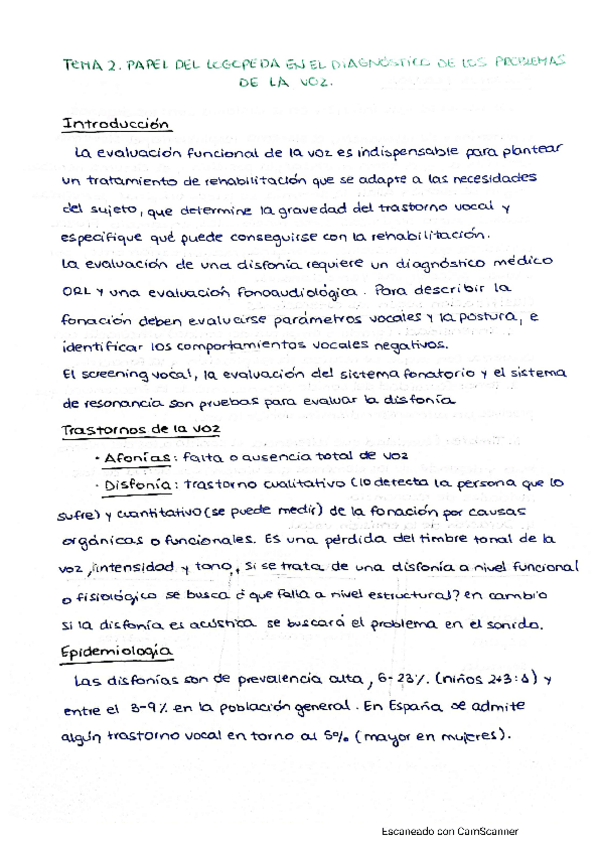 TEMA 2. PAPEL DEL LOGOPEDA EN EL DIAGNÓSTICO DE LOS PROBLEMAS
DE LA VOZ.
Introducción
La evaluación funcional de la voz es indispensable para plantear
un tratamiento de rehabilitación que se adapte a las necesidades
del sujeto, que determine la gravedad del trastorno vocal y
especifique qué puede conseguirse con la rehabilitación.
La evaluación de una disfonía requiere un diagnóstico médico
ORL y una evaluación fonoaudiológica. Para describir la
fonación deben evaluarse parámetros vocales y la postura, e
identificar los comportamientos vocales negativos.
El screening vocal, la evaluación del sistema fonatorio y el sistema
de resonancia son pruebas para evaluar la disfonía
Trastornos de la voz
· Afonías: falta o ausencia total de voz
· Disfonía: trastorno cualitativo (lo detecta la persona que lo
sufre) y cuantitativo (se puede medir) de la fonación por causas
orgánicas o funcionales. Es una pérdida del timbre tonal de la
voz, intensidad y tono, si se trata de una disfonía a nivel funcional
o fisiológico se busca ¿que falla a nivel estructural? en cambio
si la disfonía es acústica se buscará el problema en el sonido.
Epidemiología
Las disfonías son de prevalencia alta, 6-23%. (niños 2+3:1) y
entre el 3-9% en la población general. En España se admite
algún trastorno vocal en torno al 5% (mayor en mujeres).
Escaneado con CamScanner